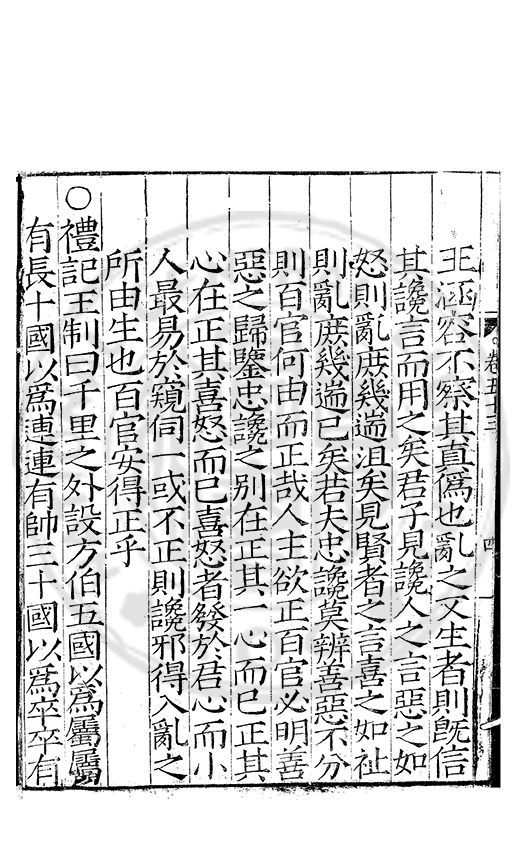 卷五十三
四
王涵容不察其真偽也亂之又生者則旣信
其讒言而用之矣君子見讒人之言惡之如
怒則亂庶幾遄沮矣見賢者之言喜之如祉
則亂庶幾遄已矣若夫忠讒莫辨善惡不分
則百官何由而正哉人主欲正百官必明善
惡之歸鑒忠讒之别在正其一心而已正其
心在正其喜怒而已喜怒者發於君心而小
人最易於窺伺一或不正則讒邪得入亂之
所由生也百官安得正乎
○禮記王制曰千里之外設方伯五國以爲屬屬
有長十國以爲連連有帥三十國以爲卒卒有